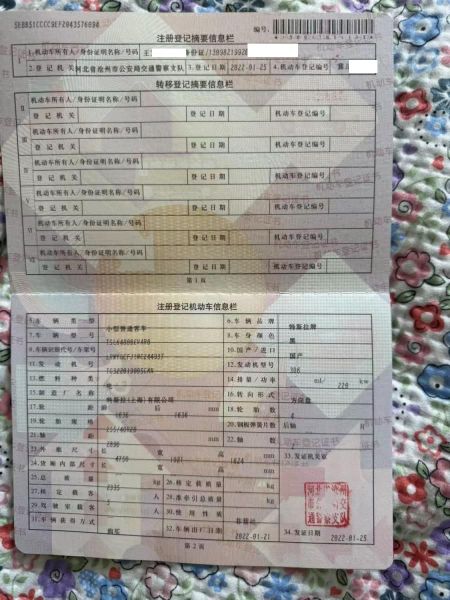 注册登记摘要信息栏
编号:
1.机动车所有人/身份证明名称/号码 王 身份证/
2.登记机关 河北省沧州市公安局交通警察支队 3.登记日期 2022-01-25 4.机动车登记编号 冀
转移登记摘要信息栏
机动车所有人/身份证明名称/号码
登记机关 登记日期 机动车登记编号
机动车所有人/身份证明名称/号码
登记机关 登记日期 机动车登记编号
机动车所有人/身份证明名称/号码
登记机关 登记日期 机动车登记编号
机动车所有人/身份证明名称/号码
登记机关 登记日期 机动车登记编号
机动车所有人/身份证明名称/号码
登记机关 登记日期 机动车登记编号
第1页
注册登记机动车信息栏
5.车辆类型 小型普通客车 6.车辆品牌 特斯拉牌
7.车辆型号 8.车身颜色 黑
9.车辆识别代号/车架号 10.国产/进口 国产
11.发动机号 12.发动机型号
13.燃料种类 电 14.排量/功率 ml/ 220 kw
15.制造厂名称 特斯拉(上海)有限公司 16.转向形式 方向盘
17.轮距 1636 1636 mm 18.轮胎数 4
19.轮胎规格 20.钢板弹簧片数 后轴
21.轴距 2890 mm 22.轴数 2
23.外廓尺寸 长 4750 宽 1921 高 1624 mm
24.货厢内部尺寸 长 宽 高 mm
33.发证机关章
25.总质量 2335 kg 26.核定载质量 kg
27.核定载客 5 人 28.准牵引总质量 kg
29.驾驶室载客 人 30.使用性质 非营运
31.车辆获得方式 购买 32.车辆出厂日期 2022-01-21 34.发证日期 2022-01-25
第2页